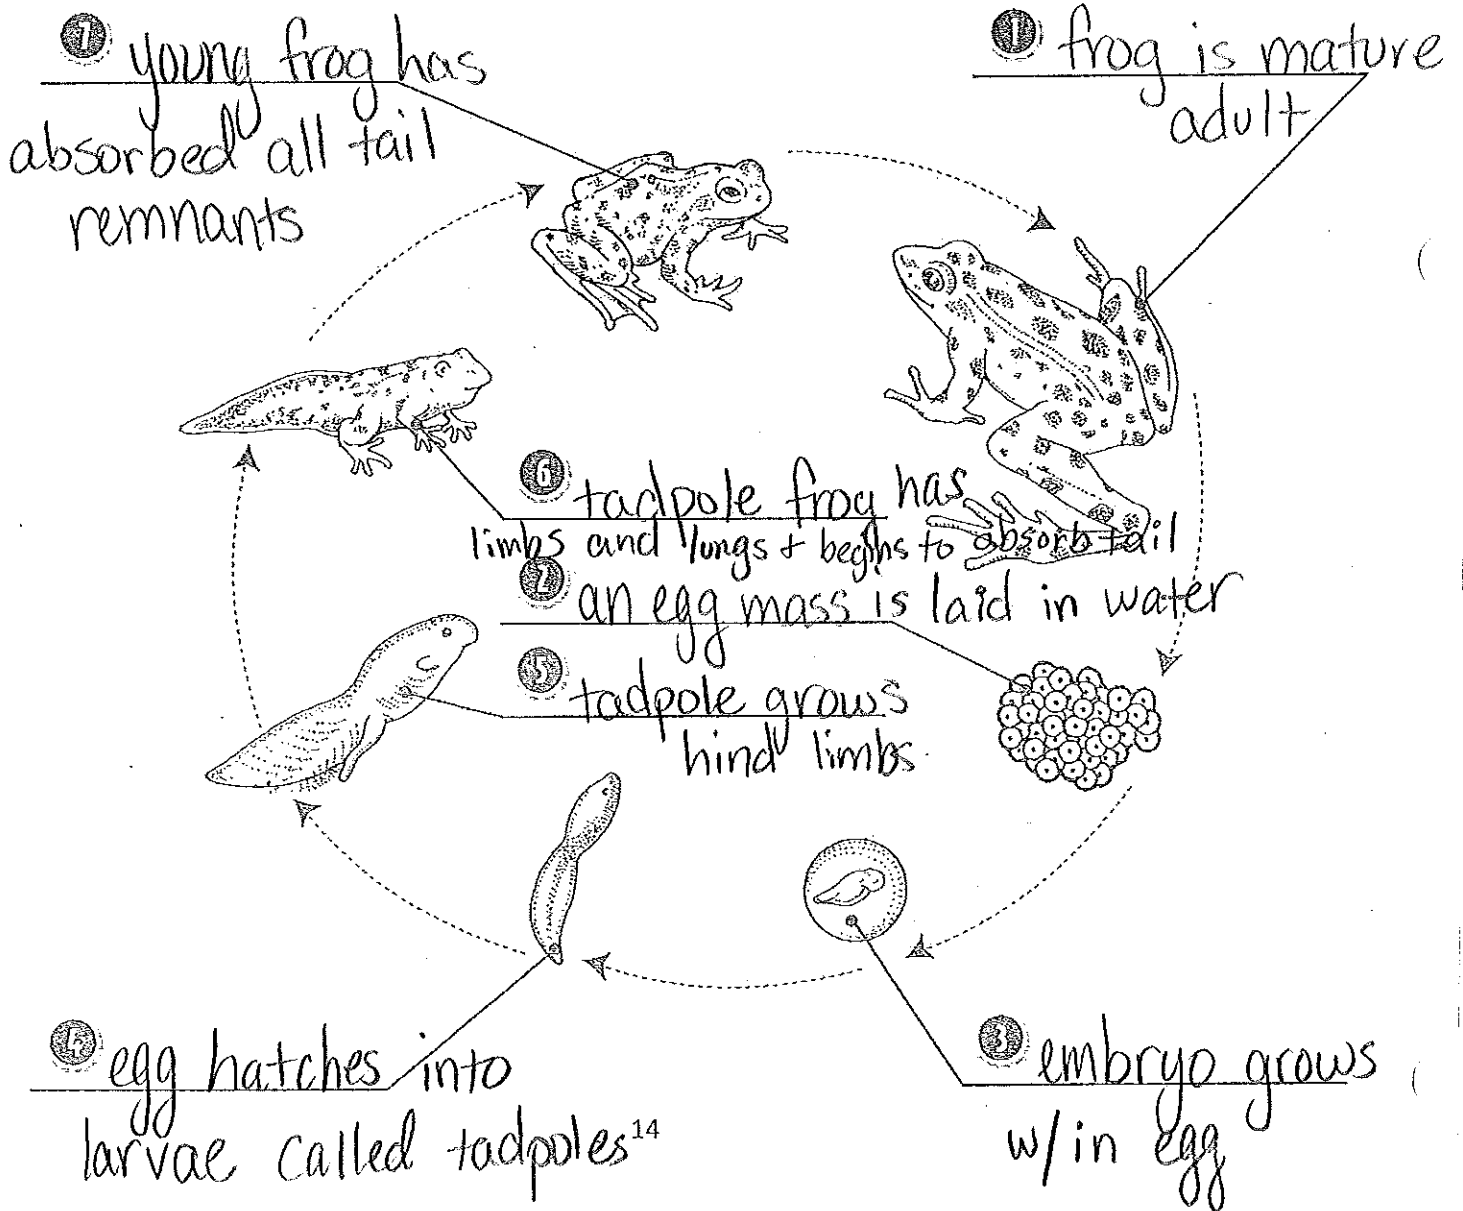 7 young frog has
absorbed all tail
remnants
1 frog is mature
adult
6 tadpole frog has
limbs and lungs + begins to absorb tail
2 an egg mass is laid in water
5 tadpole grows
hind limbs
4 egg hatches into
larvae called tadpoles
14
3 embryo grows
w/in egg